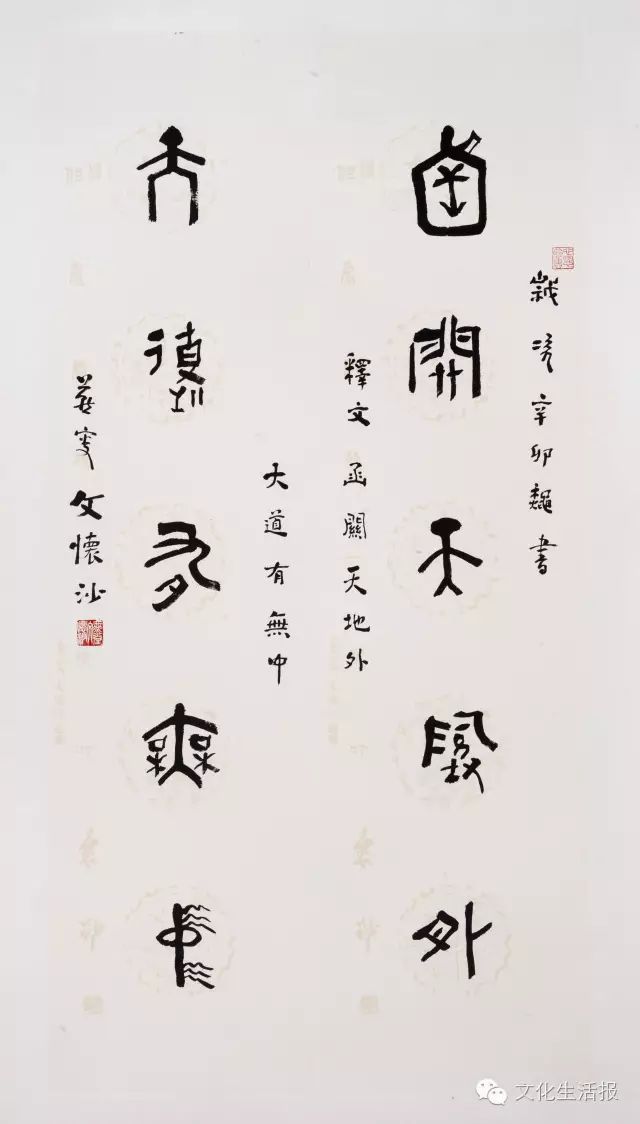 歲次辛卯龝書
函關天地外
釋文 函關天地外
大道有無中
大道有無中
燕叟文懷沙
文化生活报